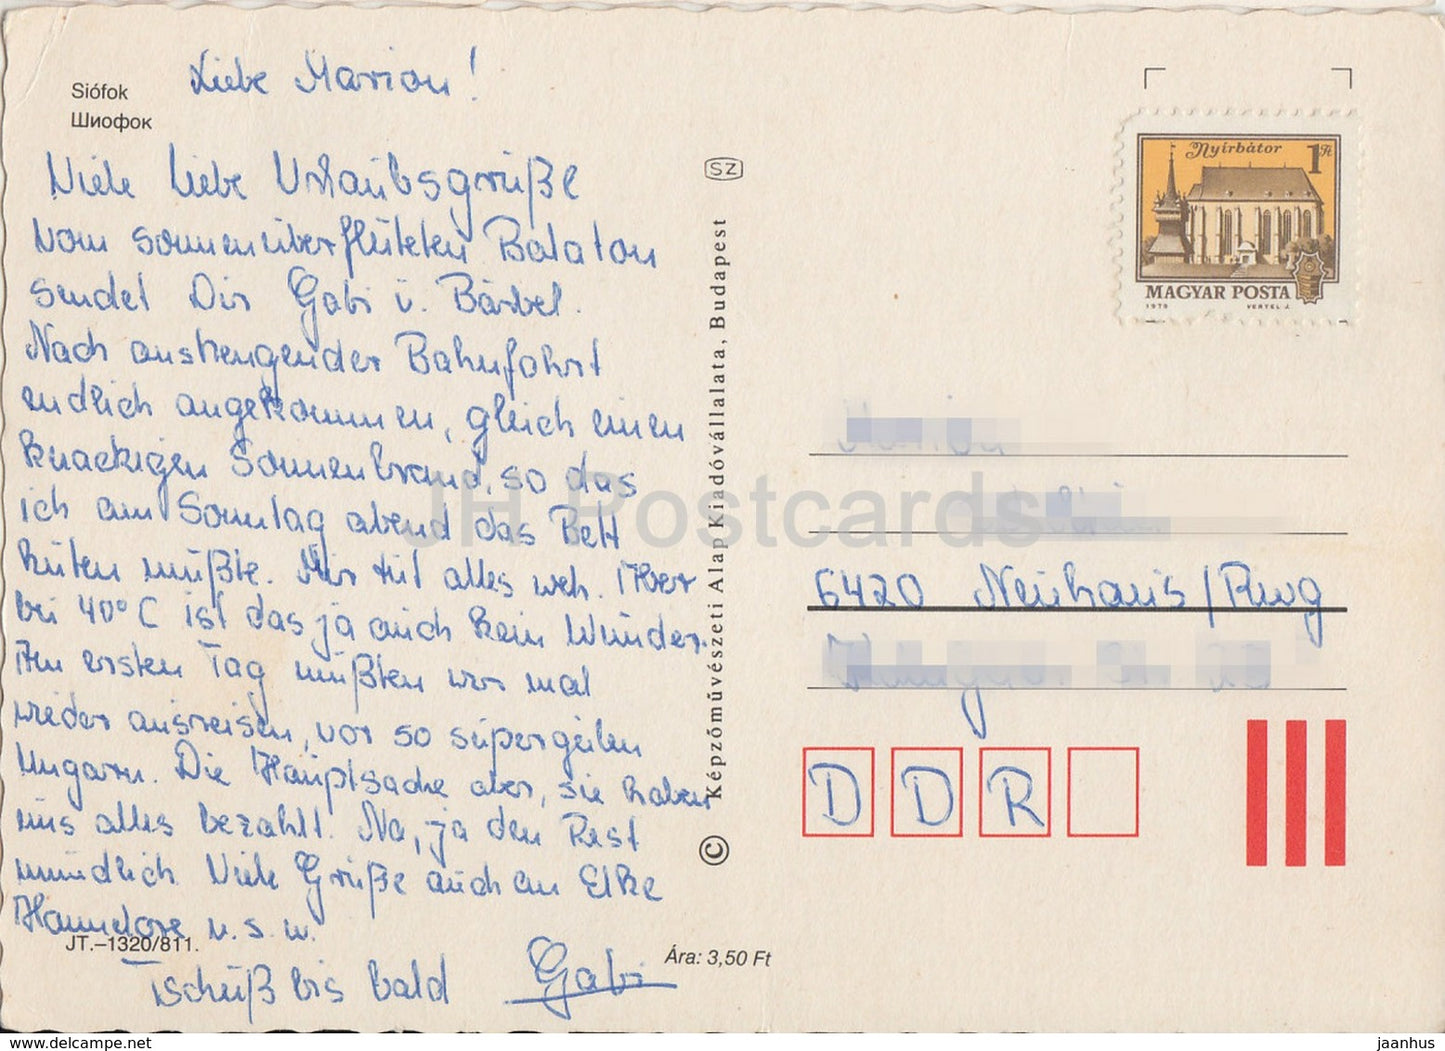 Siófok
Шиофок
Liebe Marion!
Viele liebe Urlaubsgrüße
vom sonnenüberfluteten Balaton
sendet Dir Gabi u. Bärbel.
Nach anstrengender Bahnfahrt
endlich angekommen, gleich einen
knackigen Sonnenbrand, so das
ich am Sonntag abend das Bett
hüten mußte. Mir tut alles weh. Aber
bei 40°C ist das ja auch kein Wunder.
Am ersten Tag mußten wir mal
wieder ausreisen, vor so supergeilen
Ungarn. Die Hauptsache aber, sie haben
uns alles bezahlt. Na, ja den Rest
mündlich. Viele Grüße auch an Elke
Hannelore u.s.w.
JT.-1320/811.
Tschüß bis bald Gabi
Ára: 3,50 Ft
SZ
© Képzőművészeti Alap Kiadóvállalata, Budapest
Nyírbátor 1 Ft
MAGYAR POSTA
1979 VERTEL J.
6420 Neuhaus/Rwg
DDR
JH Postcards
www.delcampe.net
jaanhus